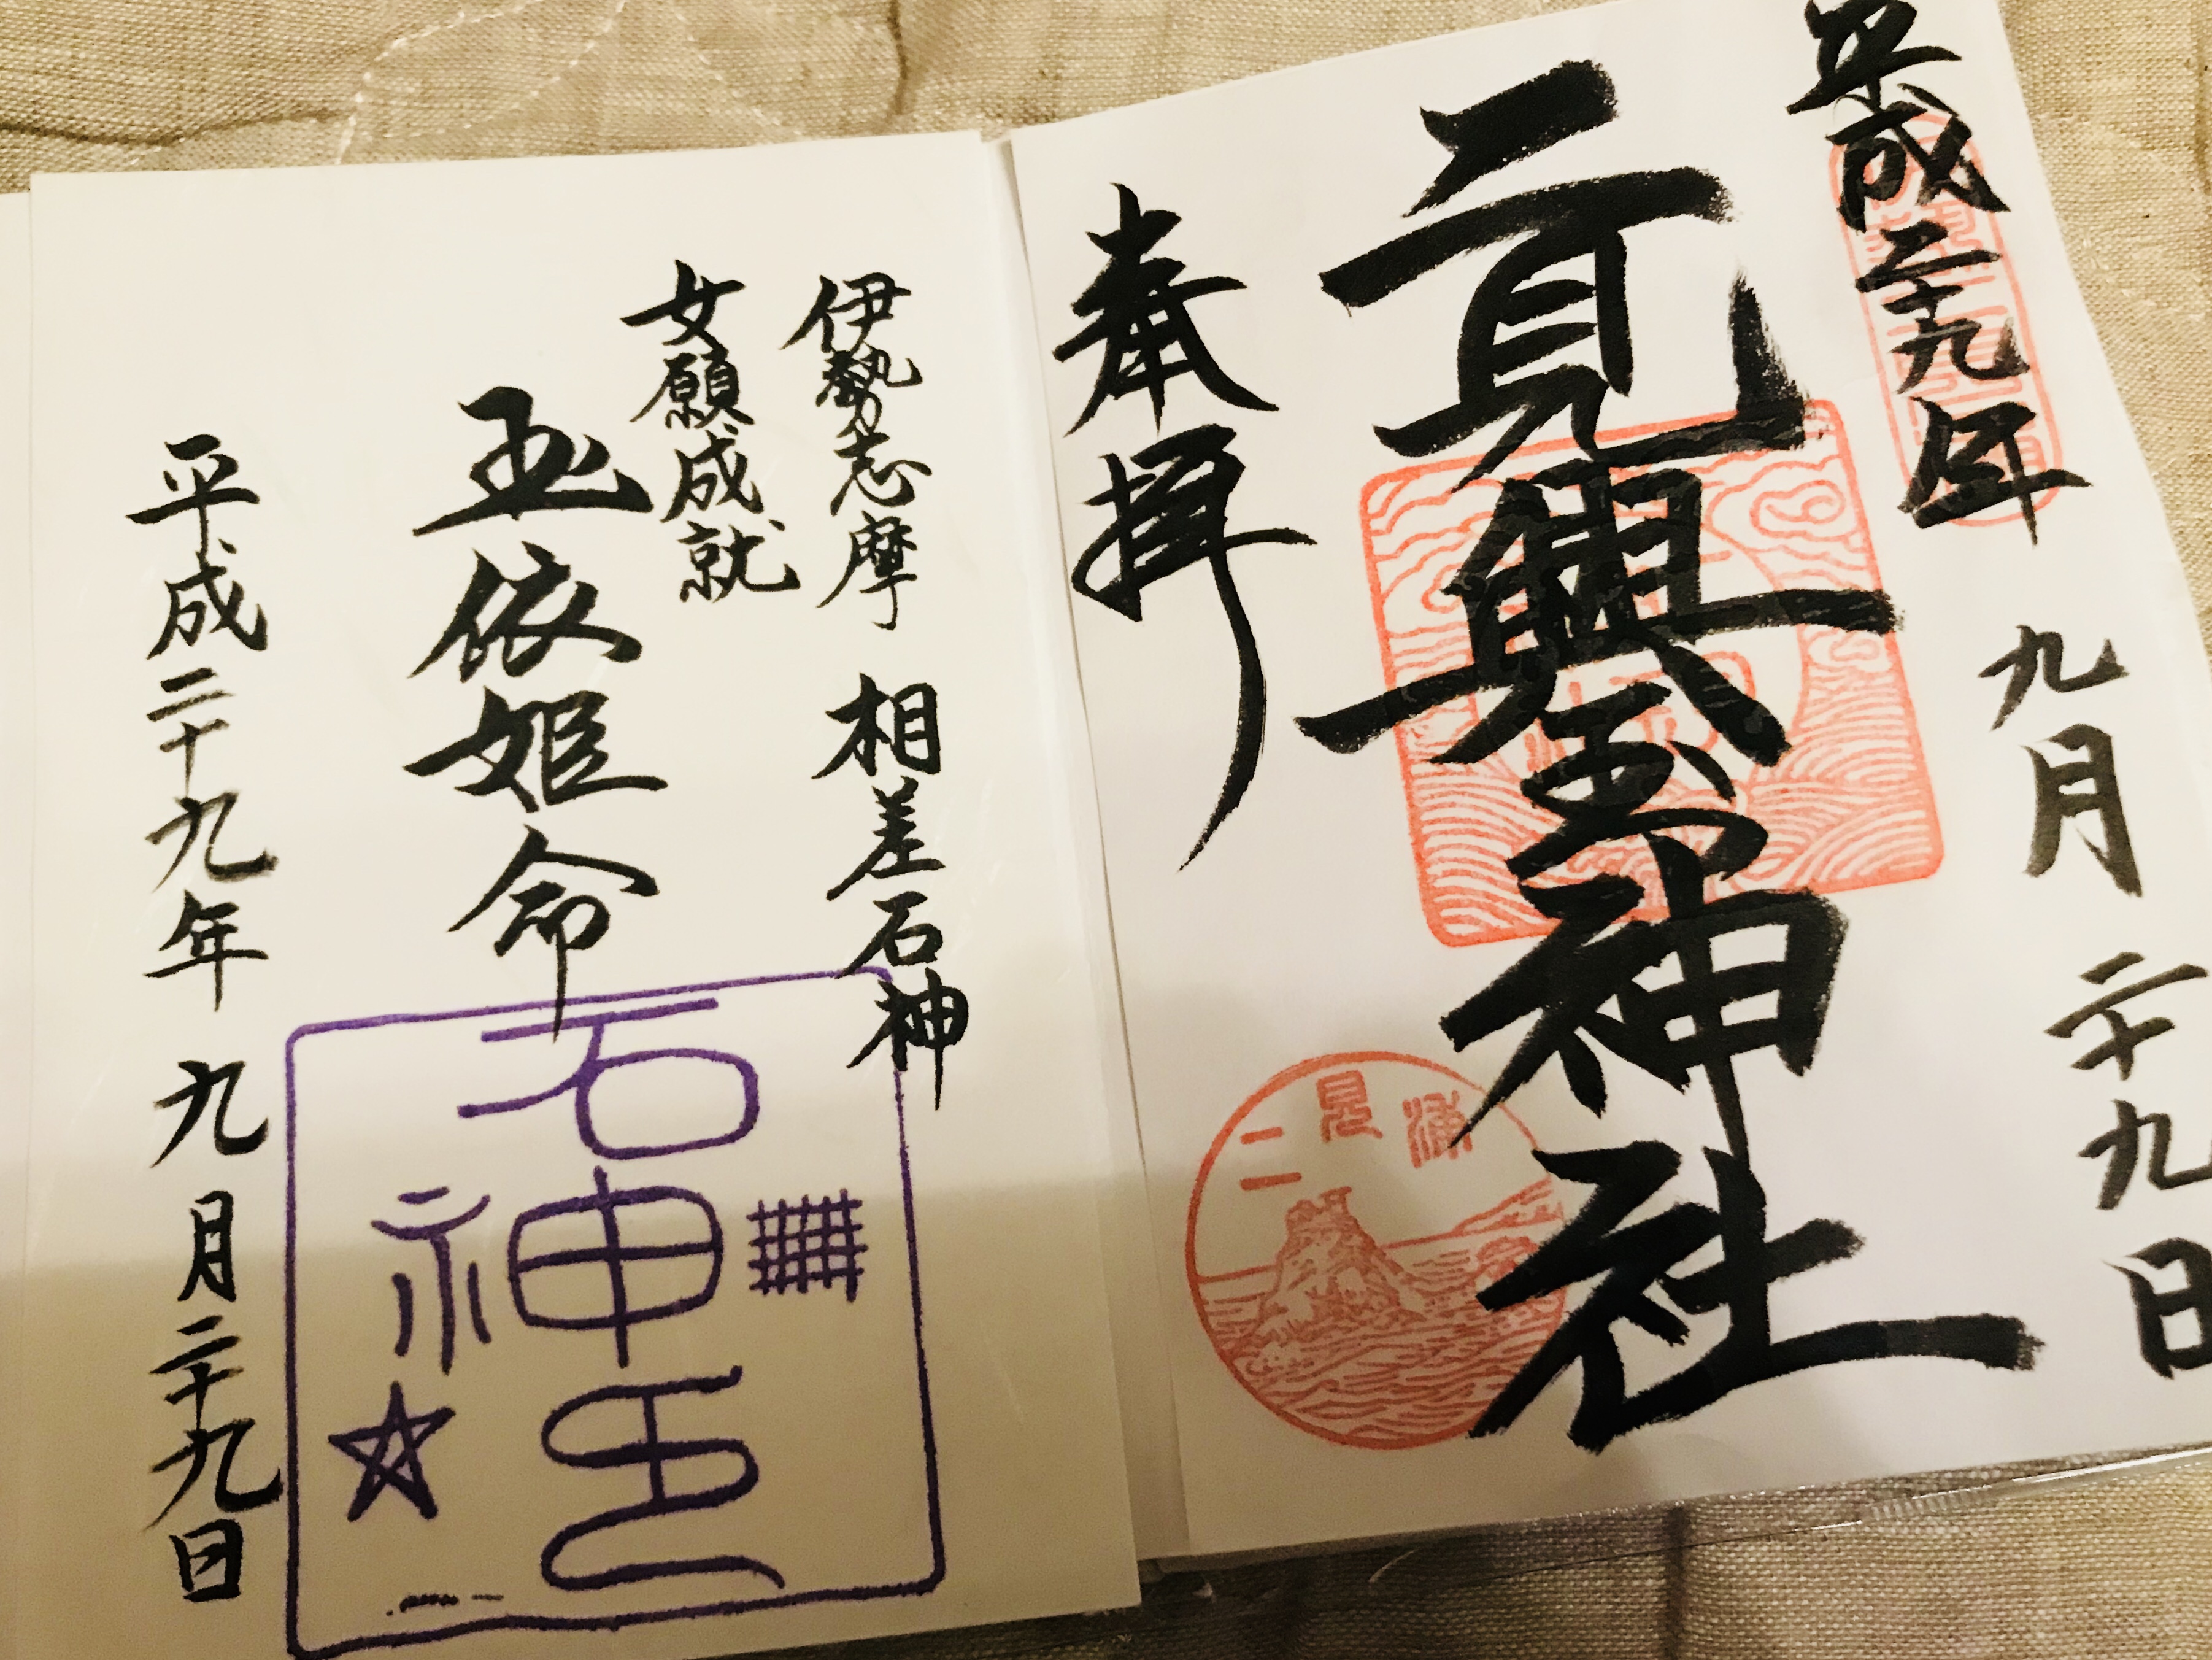 平成二十九年 九月 二十九日
二見興玉神社
奉拝
二見浦
伊勢志摩 相差石神
女願成就
玉依姫命
石神
平成二十九年 九月二十九日